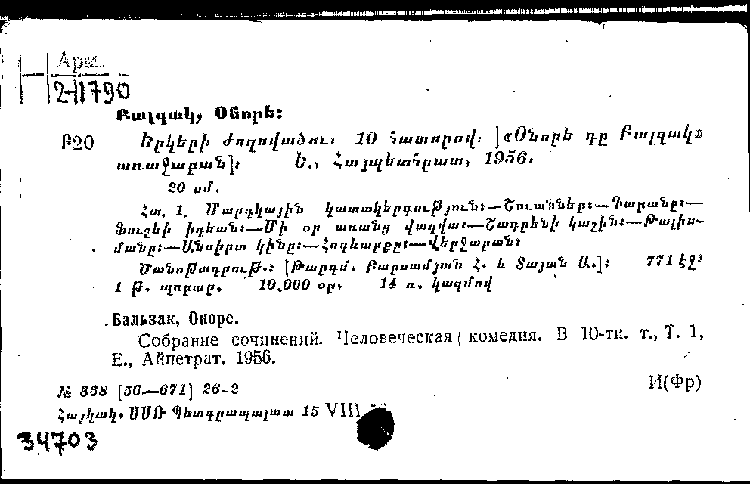 Арм.
2-11790
Բալզակ, Օնորե:
Բ20 Երկերի ժողովածու. 10 հատորով. [«Օնորե դը Բալզակ»
առաջաբան]: Ե., Հայպետհրատ, 1956.
20 սմ.
Հտ. 1. Մարդկային կատակերգություն:—Շուաններ:—Պարանը:—
իդեան:—Մի օր առանց վաղվա:—Շագրենի կաշին:—Թալիս-
մանը:—Անսիրտ կինը:—Հոգեվարքը:—Վերջաբան:
Ծանոթագրութ.: [Թարգմ. Բարսամյան Հ. և Տայան Ա.]: 771 էջ:
1 թ. պորտր. 10.000 օր. 14 ռ. կազմով
Бальзак, Оноре.
Собрание сочинений. Человеческая комедия. В 10-ти. т., Т. 1,
Е., Айпетрат. 1956.
И(Фр)
№ 338 [56.—671] 26-2
Հայկակ. ՍՍՌ Պետգրապալատ 15 VIII
34703